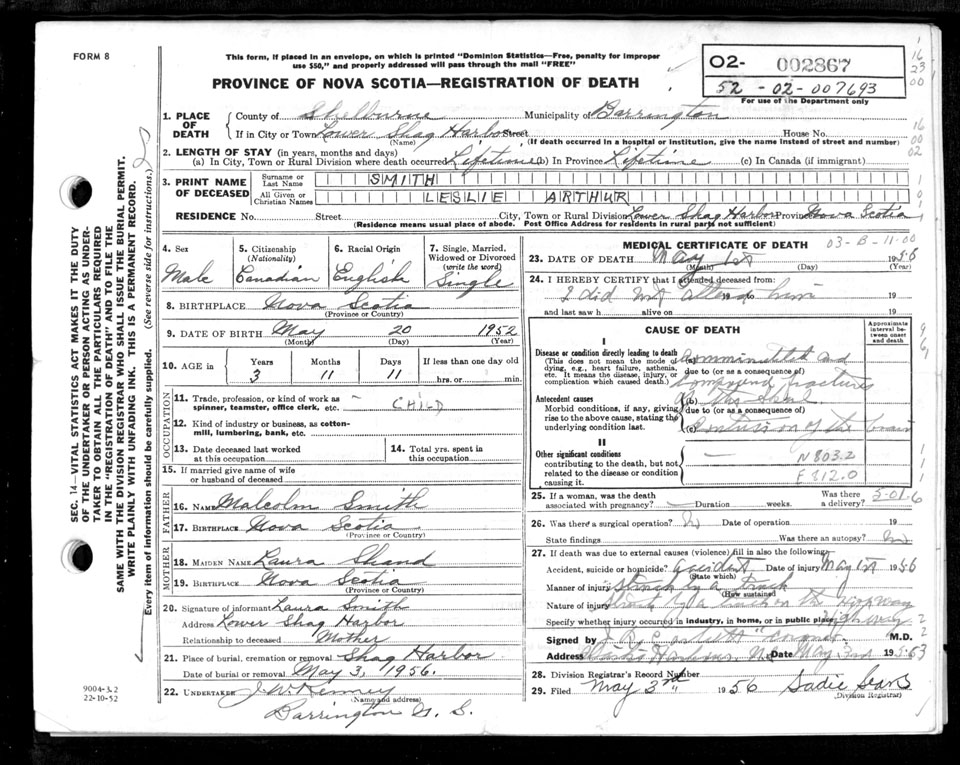 FORM 8
This form, if placed in an envelope, on which is printed "Dominion Statistics—Free, penalty for improper
use $50," and properly addressed will pass through the mail "FREE"
PROVINCE OF NOVA SCOTIA—REGISTRATION OF DEATH
02- 002867
52 - 02 - 007693
For use of the Department only
16
23
00
16
00
02
1. PLACE OF DEATH
County of Shelburne Municipality of Barrington
If in City or Town Lower Shag Harbor Street House No.
(Name) (If death occurred in a hospital or institution, give the name instead of street and number)
2. LENGTH OF STAY (in years, months and days)
(a) In City, Town or Rural Division where death occurred Lifetime (b) In Province Lifetime (c) In Canada (if immigrant)
3. PRINT NAME OF DECEASED
Surname or Last Name SMITH
All Given or Christian Names LESLIE ARTHUR
RESIDENCE No. Street City, Town or Rural Division Lower Shag Harbor Province Nova Scotia
(Residence means usual place of abode. Post Office Address for residents in rural parts not sufficient)
4. Sex
Male
5. Citizenship
(Nationality)
Canadian
6. Racial Origin
English
7. Single, Married,
Widowed or Divorced
(write the word)
Single
8. BIRTHPLACE Nova Scotia
(Province or Country)
9. DATE OF BIRTH May 20 1952
(Month) (Day) (Year)
10. AGE in
Years Months Days If less than one day old
3 11 11 hrs. or min.
OCCUPATION
11. Trade, profession, or kind of work as
spinner, teamster, office clerk, etc. - CHILD
12. Kind of industry or business, as cotton-
mill, lumbering, bank, etc.
13. Date deceased last worked
at this occupation
14. Total yrs. spent in
this occupation
15. If married give name of wife
or husband of deceased
FATHER
16. NAME Malcolm Smith
17. BIRTHPLACE Nova Scotia
(Province or Country)
MOTHER
18. MAIDEN NAME Laura Shand
19. BIRTHPLACE Nova Scotia
(Province or Country)
20. Signature of informant Laura Smith
Address Lower Shag Harbor
Relationship to deceased Mother
21. Place of burial, cremation or removal Shag Harbor
Date of burial or removal May 3, 1956.
22. UNDERTAKER J. W. Kenney
(Name and address)
Barrington N. S.
MEDICAL CERTIFICATE OF DEATH
03-B-11-00
23. DATE OF DEATH May 1st 1956
(Month) (Day) (Year)
24. I HEREBY CERTIFY that I attended deceased from:
I did not attend him 19 to 19
and last saw h alive on 19
CAUSE OF DEATH
Approximate
interval be-
tween onset
and death
I
Disease or condition directly leading to death
(This does not mean the mode of
dying, e.g., heart failure, asthenia,
etc. It means the disease, injury, or
complication which caused death.)
(a) Comminuted and
due to (or as a consequence of)
compound fractures
Antecedent causes
Morbid conditions, if any, giving
rise to the above cause, stating the
underlying condition last.
(b) the skull
due to (or as a consequence of)
(c) Contusion of the brain
II
Other significant conditions
contributing to the death, but not
related to the disease or condition
causing it.
N 803.2
E 812.0
25. If a woman, was the death
associated with pregnancy? Duration weeks. Was there
a delivery? 5-01.6
26. Was there a surgical operation? No Date of operation 19
State findings Was there an autopsy? No
27. If death was due to external causes (violence) fill in also the following
Accident, suicide or homicide? accident Date of injury May 1st 1956
(State which)
Manner of injury Struck by a truck
(How sustained
Nature of injury Struck by a truck on the highway
Specify whether injury occurred in industry, in home, or in public place highway
Signed by "coroner" M.D.
Address N.S. Date May 3rd 195
28. Division Registrar's Record Number
29. Filed May 3rd 1956 Sadie Sears
(Division Registrar)
SEC. 14—VITAL STATISTICS ACT MAKES IT THE DUTY
OF THE UNDERTAKER OR PERSON ACTING AS UNDER-
TAKER TO OBTAIN ALL THE PARTICULARS REQUIRED
IN THE "REGISTRATION OF DEATH" AND TO FILE THE
SAME WITH THE DIVISION REGISTRAR WHO SHALL ISSUE THE BURIAL PERMIT.
WRITE PLAINLY WITH UNFADING INK. THIS IS A PERMANENT RECORD.
Every item of information should be carefully supplied. (See reverse side for instructions.)
9004-3.2
22-10-52